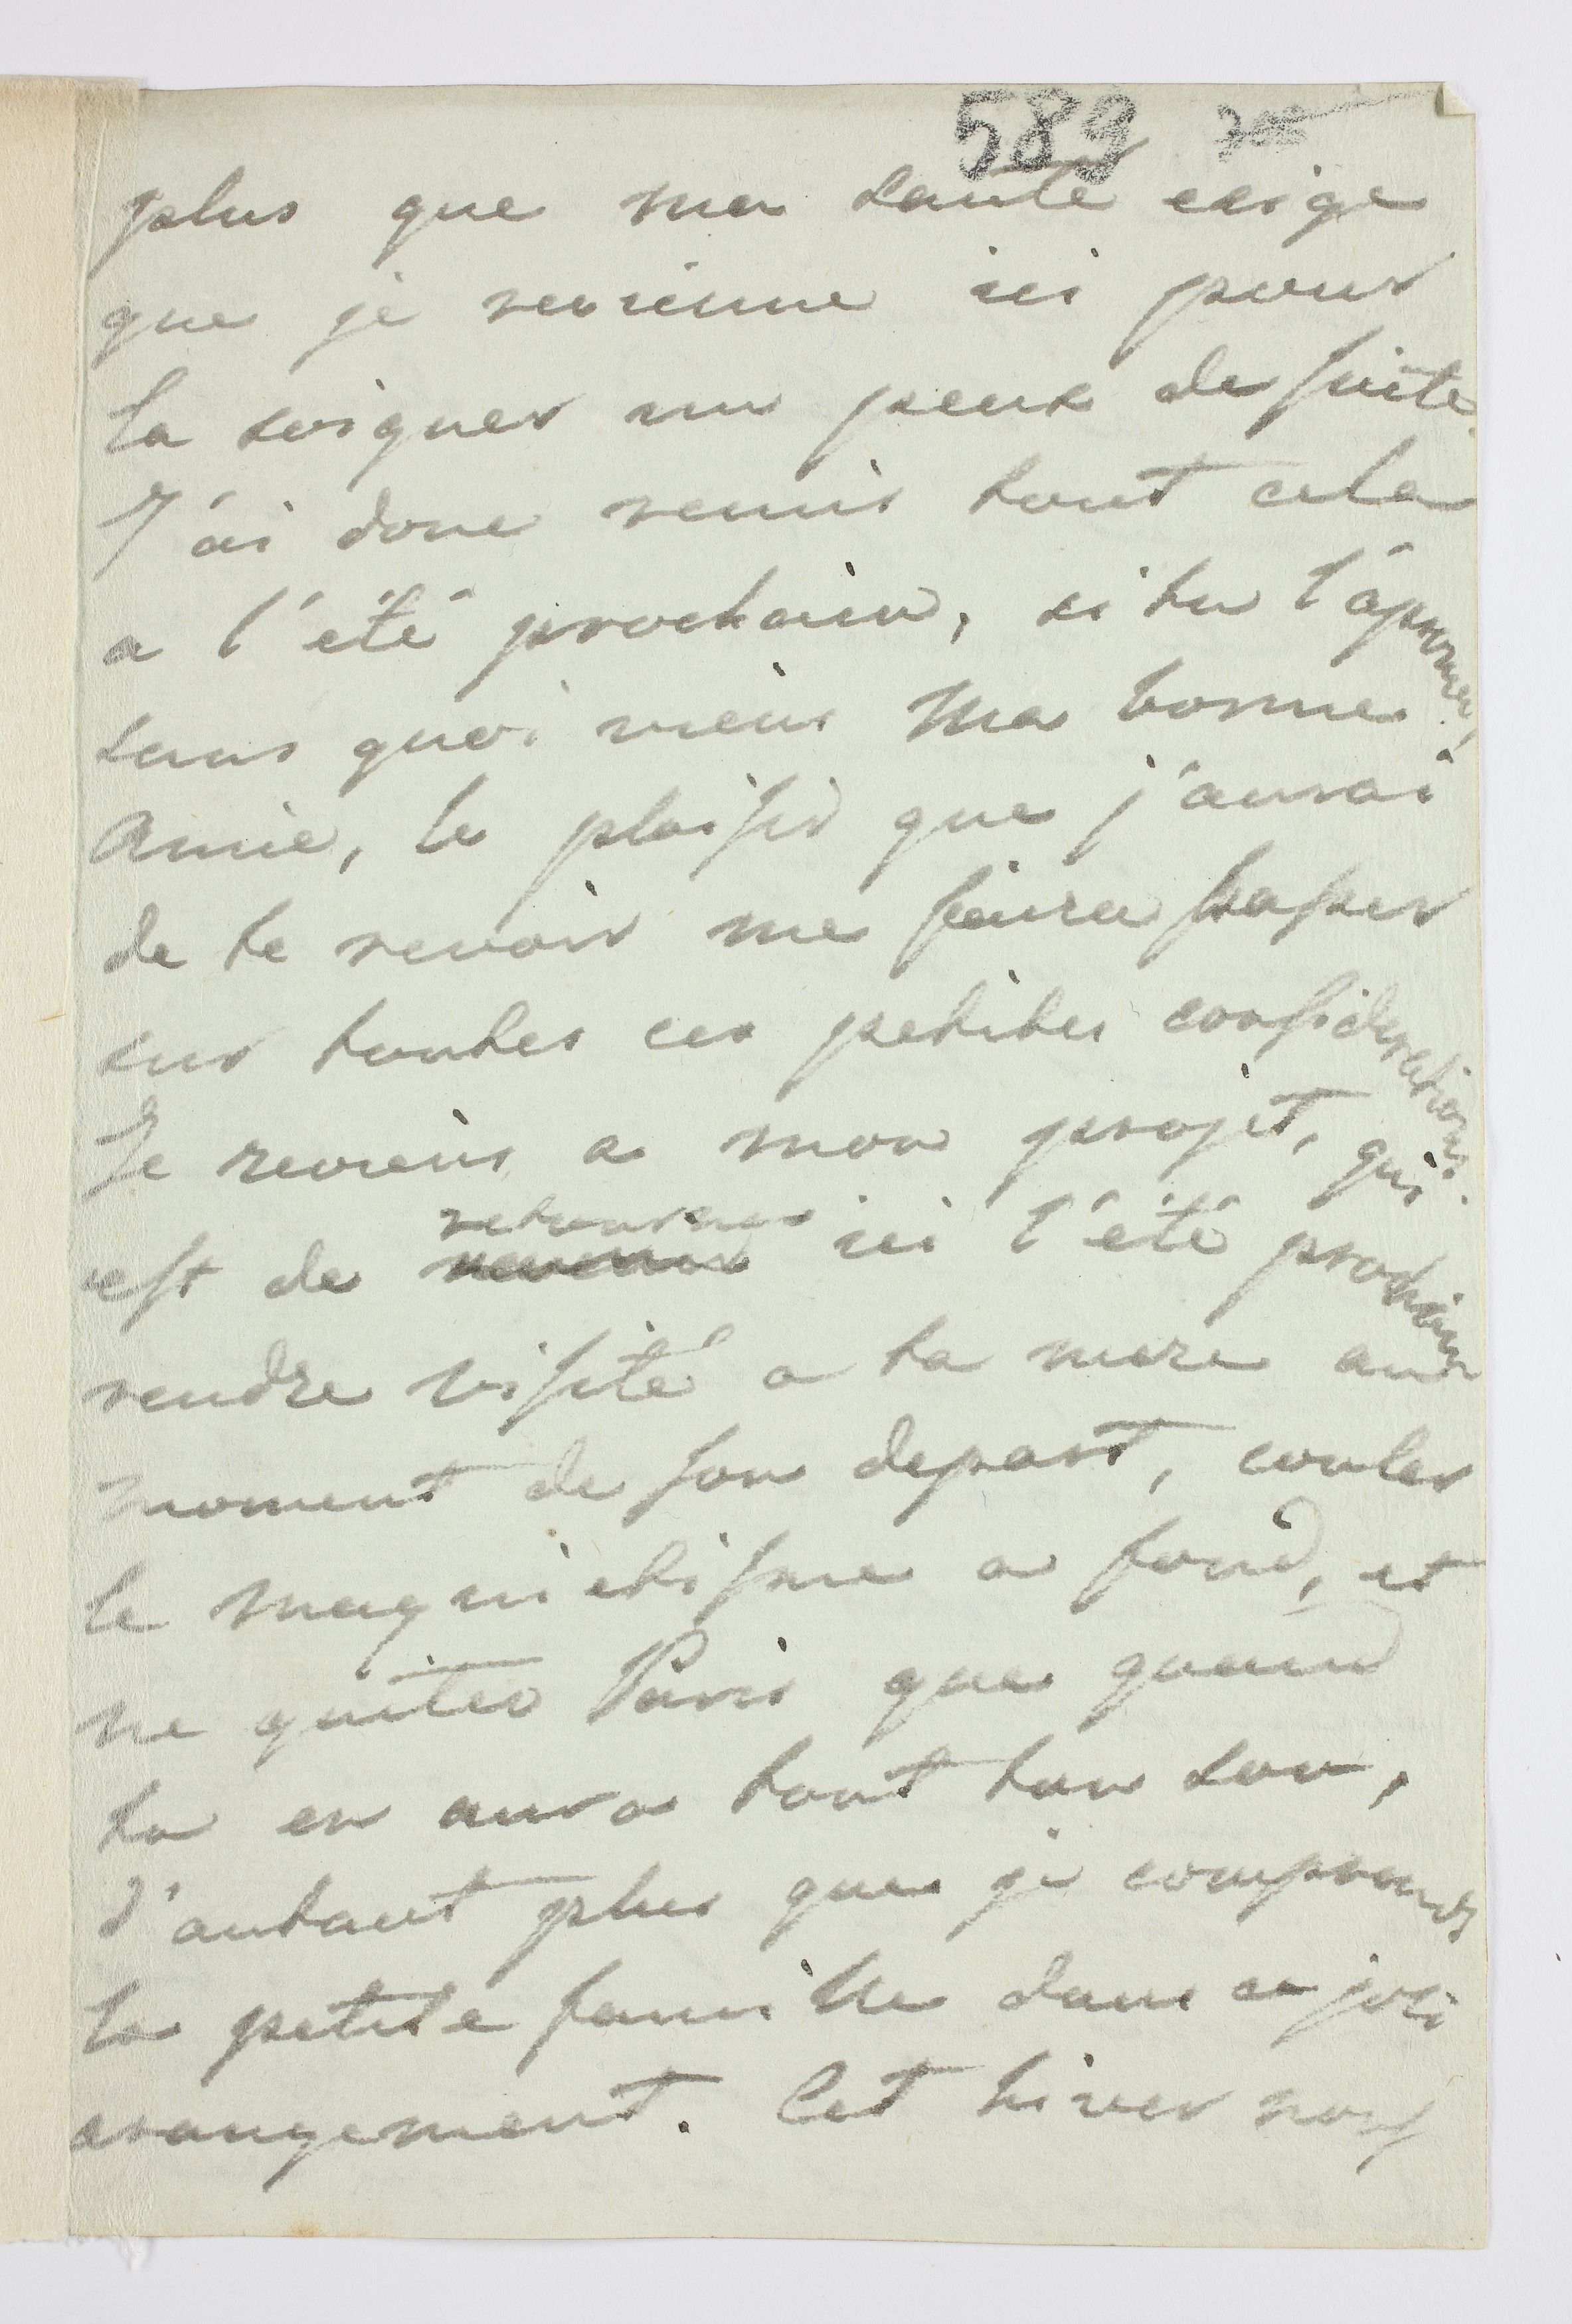 589
plus que ma santé exige
que je revienne ici pour
la soigner un peux de suite.
J'ai donc remis tout cela
a l'été prochain, si tu l'aprouve,
sans quoi viens Ma bonne
Amie, le plaisir que j'aurai
de te revoir me faira passer
sur toutes ces petites considerations.
Je reviens a mon projet, qui
est de retourner ici l'été prochain
rendre visite a ta mere au
moment de son depart, couler
le magnietisme a fond, et
ne quiter Paris que quand
tu en aura tout ton sou,
d'autant plus que je comprends
ta petite famille dans ce joli
arangement. Cet hiver nous